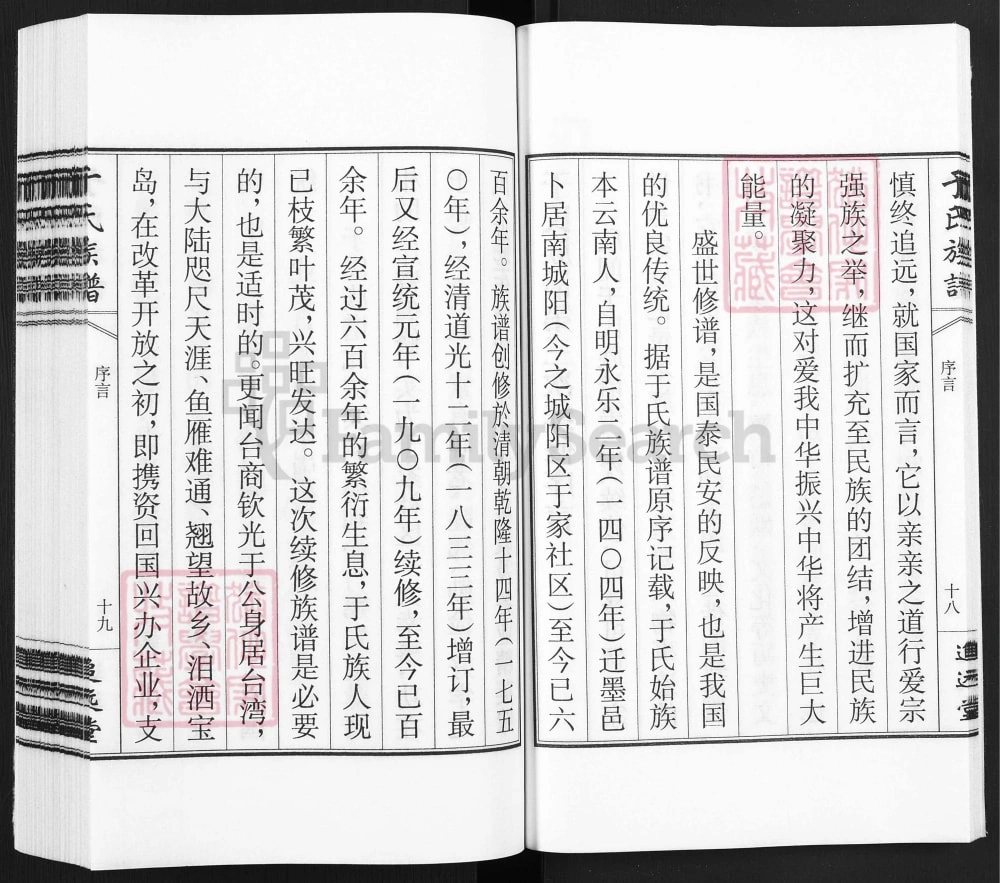 于氏族谱
序言
十八
追远堂
慎终追远，就国家而言，它以亲亲之道行爱宗
强族之举，继而扩充至民族的团结，增进民族
的凝聚力，这对爱我中华振兴中华将产生巨大
能量。
盛世修谱，是国泰民安的反映，也是我国
的优良传统。据于氏族谱原序记载，于氏始族
本云南人，自明永乐二年（一四〇四年）迁墨邑
卜居南城阳（今之城阳区于家社区）至今已六
百余年。族谱创修於清朝乾隆十四年（一七五
〇年），经清道光十一年（一八三三年）增订，最
后又经宣统元年（一九〇九年）续修，至今已百
余年。经过六百余年的繁衍生息，于氏族人现
已枝繁叶茂，兴旺发达。这次续修族谱是必要
的，也是适时的。更闻台商钦光于公身居台湾，
与大陆咫尺天涯、鱼雁难通、翘望故乡、泪洒宝
岛，在改革开放之初，即携资回国兴办企业，支
于氏族谱
序言
十九
追远堂
FamilySearch